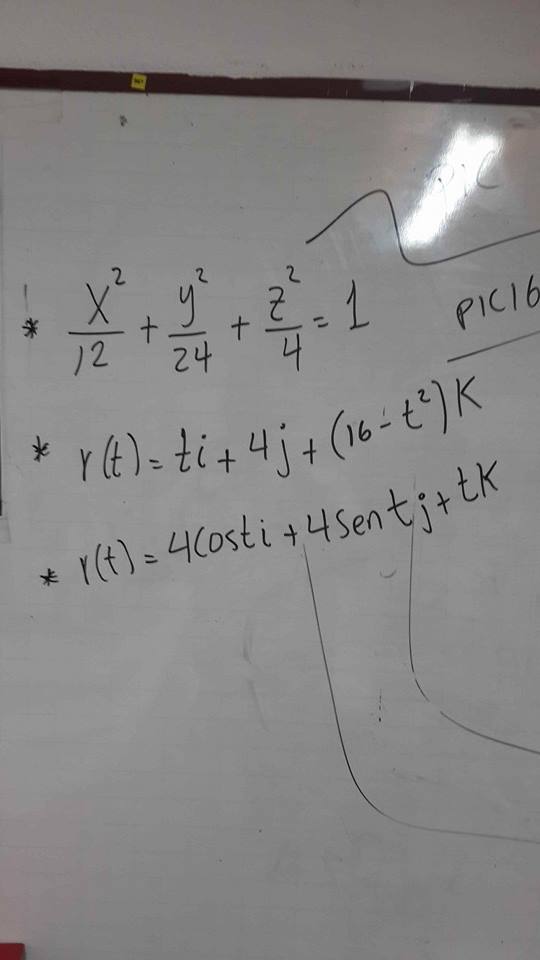 PIC
* X²/12 + y²/24 + z²/4 = 1
PIC16
* r(t) = ti + 4j + (16 - t²)K
* r(t) = 4Costi + 4Sentj + tK